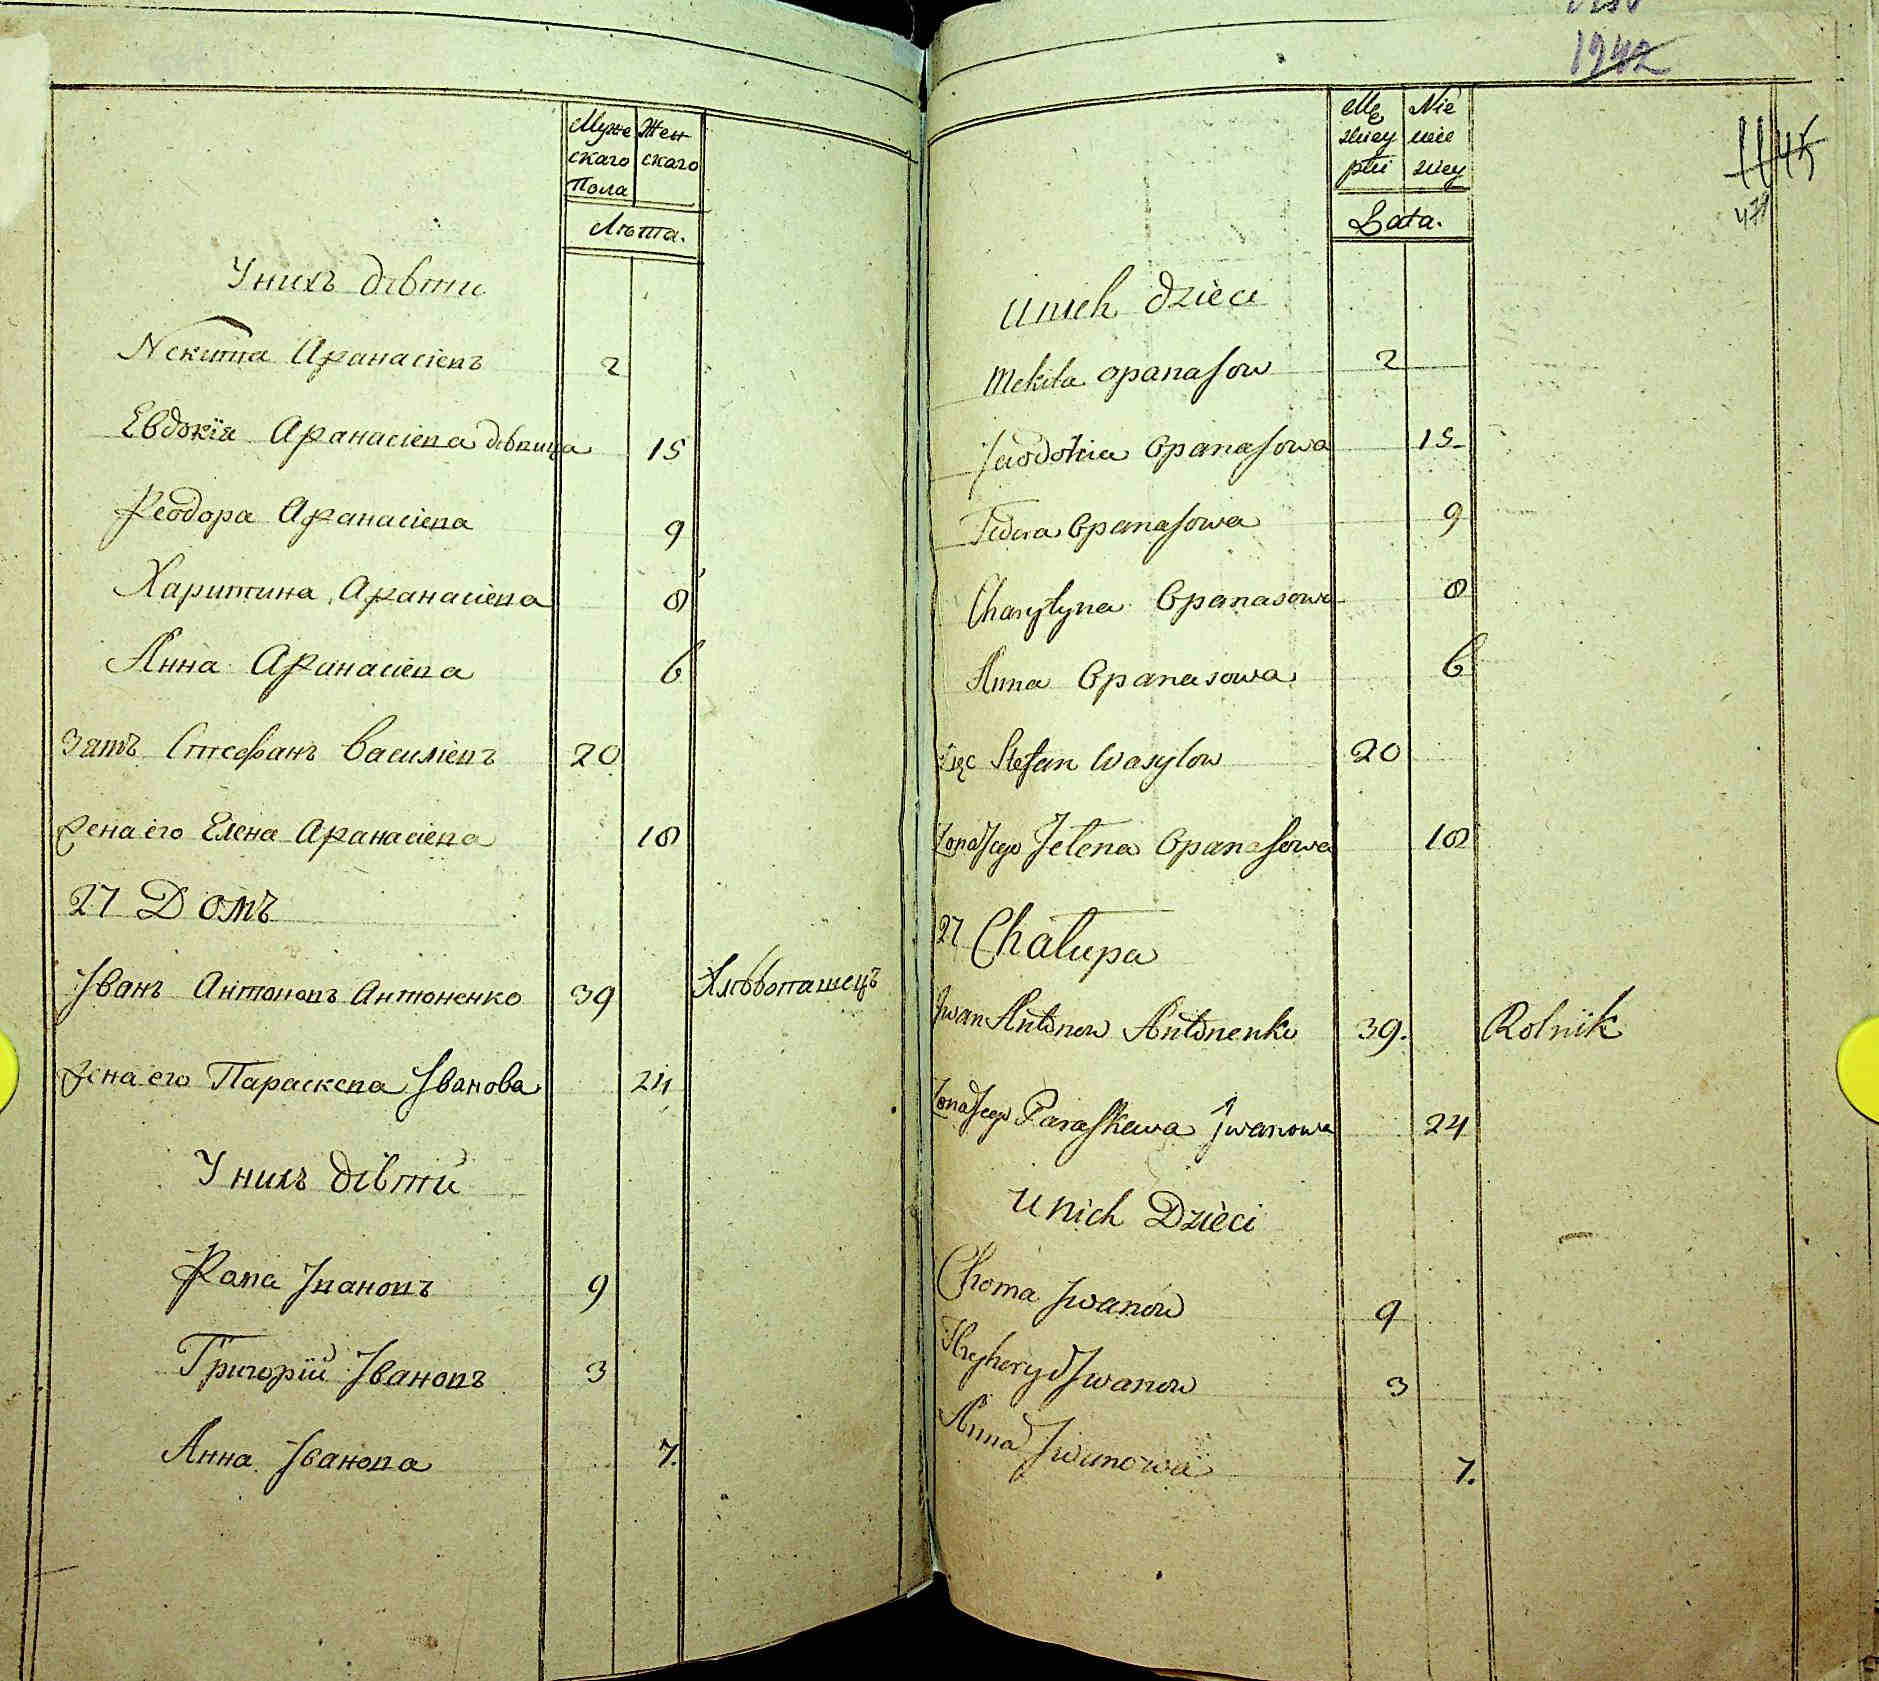 Муже Жен
скаго скаго
Пола
Лѣта.
У нихъ дѣти
Никита Афанасіевъ 2
Евдокія Афанасіева дѣвица 15
Феодора Афанасіева 9
Харитина Афанасіева 8
Анна Афанасіева 6
Зять Стефанъ Василіевъ 20
Жена его Елена Афанасіева 18
27 Домъ
Іванъ Антоновъ Антоненко 39 Хлѣбопашецъ
Жена его Параскева Іванова 24
У нихъ дѣти
Фама Івановъ 9
Григорій Івановъ 3
Анна Іванова 7.
1942
Mę Nie
zney wie
płci zney
Lata.
U nich dzieci
Mekita Opanasow 2
Jewdokia Opanasowa 15
Fedora Opanasowa 9
Charytyna Opanasowa 8
Anna Opanasowa 6
Zięc Stefan Wasylow 20
Żona Jego Jelena Opanasowa 18
27 Chałupa
Jwan Antonow Antonenko 39. Rolnik
Żona Jego Paraskewa Jwanowa 24
U nich Dzieci
Choma Jwanow 9
Hryhory Jwanow 3
Anna Jwanowa 7.